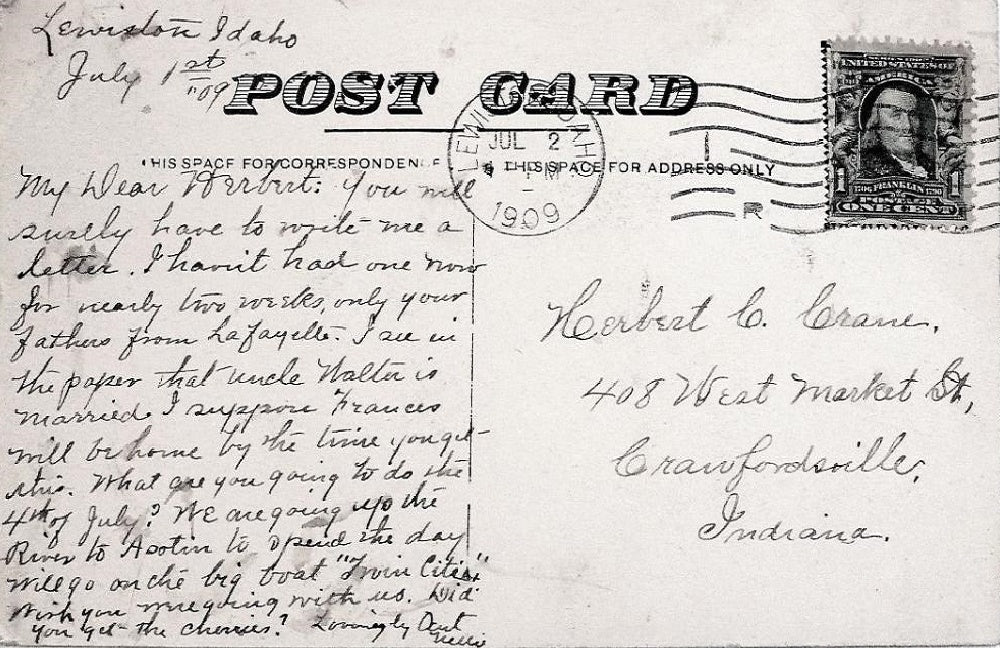 Lewiston Idaho
July 1st
"09
POST CARD
LEWISTON IDAHO
JUL 2
M
1909
R
UNITED STATES OF
AMERICA
1 1706 FRANKLIN 1790 1
POSTAGE
ONE CENT
THIS SPACE FOR CORRESPONDENCE
THIS SPACE FOR ADDRESS ONLY
My Dear Herbert: You will
surely have to write me a
letter. I havn't had one now
for nearly two weeks, only your
fathers from LaFayette. I see in
the paper that uncle Walter is
married. I suppose Frances
will be home by the time you get
this. What are you going to do the
4th of July? We are going up the
River to Asotin to spend the day
will go on the big boat "Twin Cities"
Wish you were going with us. Did
you get the cherries? Lovingly Aunt
Nellie
Herbert C. Crane,
408 West Market St,
Crawfordsville,
Indiana.